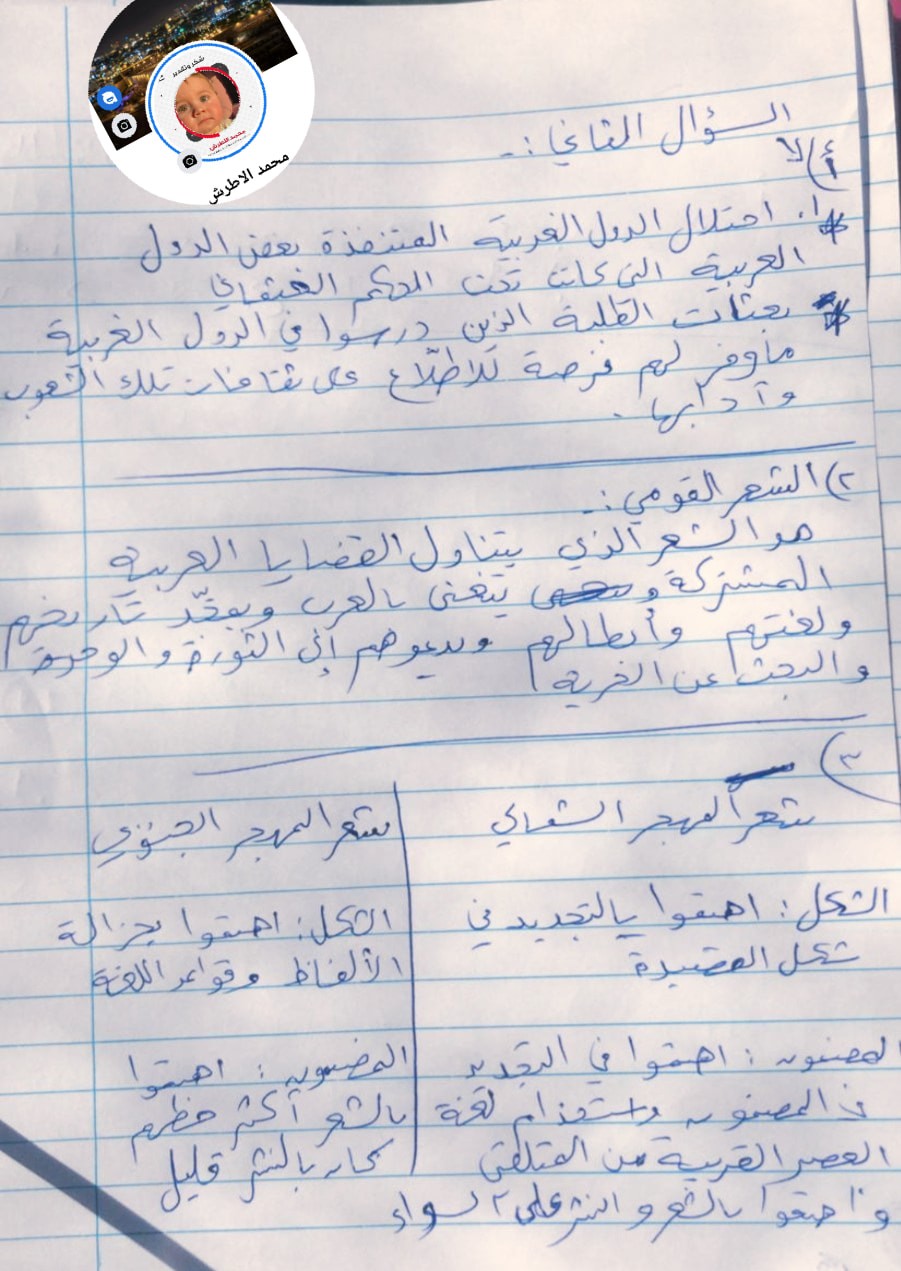 شكر وتقدير
محمد الاطرش
محمد الاطرش
السؤال الثاني :-
أ) لا
١. احتلال الدول الغربية المتنفذة بعض الدول
العربية التي كانت تحت الحكم العثماني
* بعثات الطلبة الذين درسوا في الدول الغربية
ماوفر لهم فرصة للاطلاع على ثقافات تلك الشعوب
وآدابها.
٢) الشعر القومي :-
هو الشعر الذي يتناول القضايا العربية
المشتركة و يتغنى بالعرب ويمجّد تاريخهم
ولغتهم وأبطالهم ويدعوهم إلى الثورة والوحدة
والبحث عن الحرية
٣)
شعر المهجر الشمالي
شعر المهجر الجنوبي
الشكل: اهتموا بالتجديد في
شكل القصيدة
الشكل: اهتموا بجزالة
الألفاظ وقواعد اللغة
المضمون: اهتموا في التجديد
في المضمون واستخدام لغة
العصر القريبة من المتلقي
واهتموا بالشعر والنثر على السواء
المضمون: اهتموا
بالشعر أكثر حظهم
كان بالنثر قليل